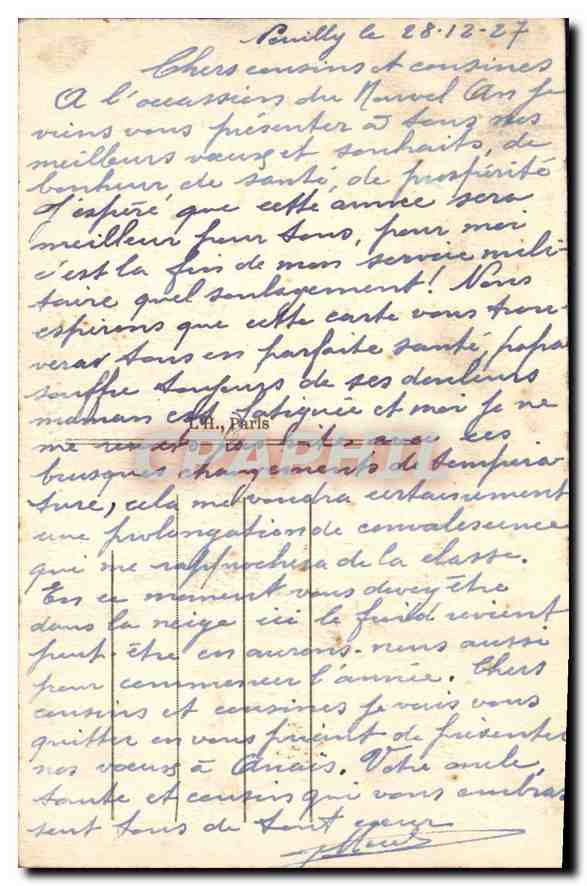 Neuilly le 28-12-27
Chers cousins et cousines
A l'occassion du Nouvel An je
viens vous présenter à tous nos
meilleurs vœux et souhaits, de
bonheur de santé, de prospérité
J'espére que cette année sera
meilleur pour tous, pour moi
c'est la fin de mon service mili-
taire quel soulagement! Nous
espérons que cette carte vous trou-
vera tous en parfaite santé, papa
souffre toujours de ses douleurs
maman est fatiguée et moi je ne
L'H., Paris
me remets pas vite avec ces
brusques changements de tempera-
ture, cela me vaudra certainement
une prolongation de convalescence
qui me rapprochera de la classe.
En ce moment vous devez être
dans la neige ici le froid revient
peut-être en aurons-nous aussi
pour commencer l'année. Chers
cousins et cousines je vais vous
quitter en vous priant de présenter
nos vœux à Anaïs. Votre oncle,
tante et cousin qui vous embras
sent tous de tout cœur
CPAPHIL